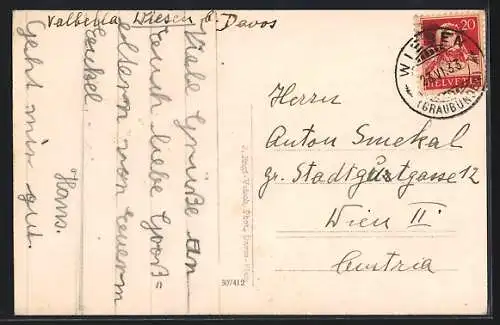 Valbella Wiesen b. Davos
Viele Grüße an
Euch liebe Groß=
eltern von Eurem
Enkel
Hans.
Geht mir gut.
20
HELVETIA
WIESEN
(GRAUBÜND.)
Herrn
Anton Smekal
gr. Stadtgutgasse 12
Wien II
Austria
307412